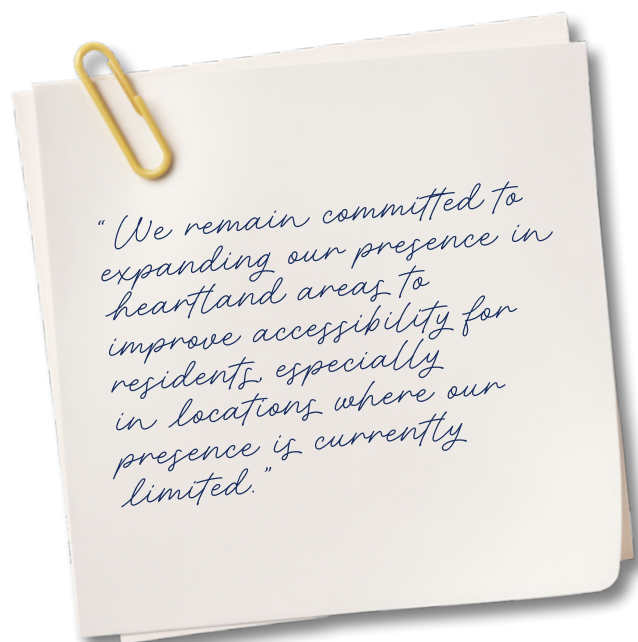 “We remain committed to
expanding our presence in
heartland areas to
improve accessibility for
residents, especially
in locations where our
presence is currently
limited.”